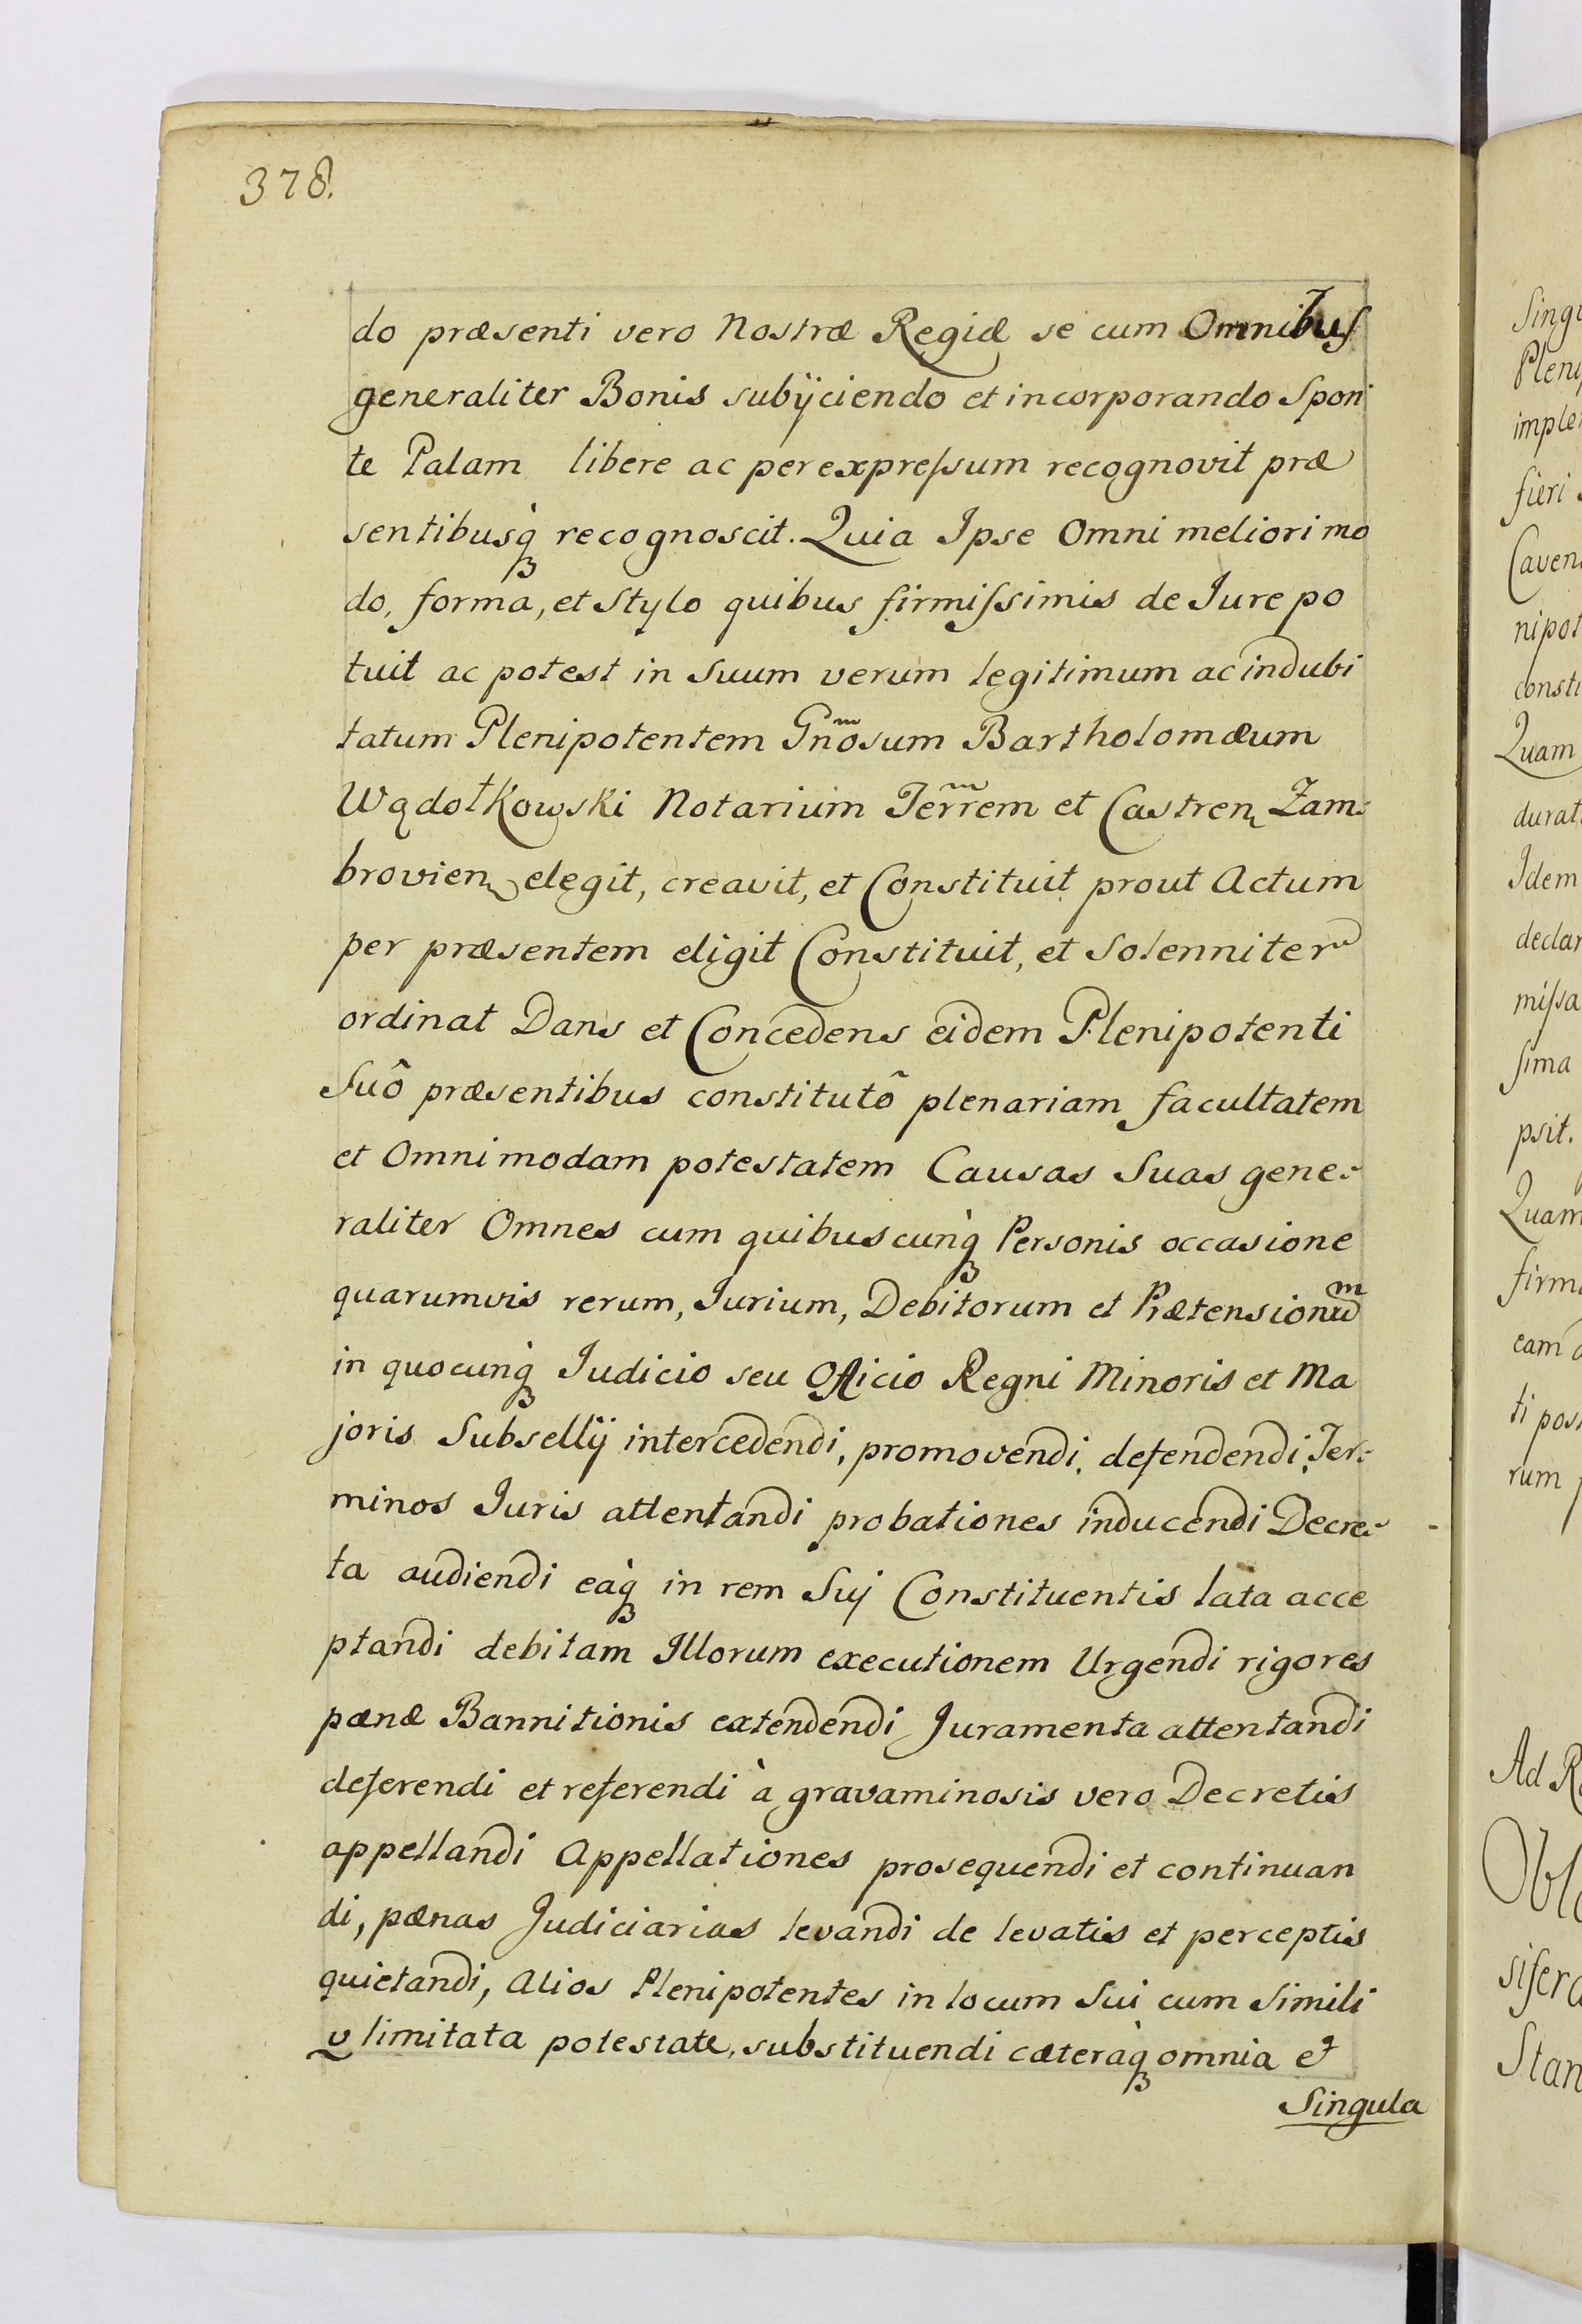 378.
do præsenti vero Nostræ Regiæ se cum Omnibus
generaliter Bonis subijciendo et incorporando Spon
te Palam libere ac per expressum recognovit præ
sentibusq́ꝫ recognoscit. Quia Ipse Omni meliori mo
do, forma, et Stylo quibus firmissimis de Iure po
tuit ac potest in Suum verum legitimum ac indubi
tatum Plenipotentem Gn̄osum Bartholomæum
Wądołkowski Notarium Terr̃em et Castren Zam:
brovien elegit, creavit, et Constituit prout Actum
per præsentem eligit Constituit, et Solenniter
ordinat Dans et Concedens eidem Plenipotenti
Suô præsentibus constitutô plenariam facultatem
et Omnimodam potestatem Causas Suas gene:
raliter Omnes cum quibuscunq̀ꝫ Personis occasione
quarumvis rerum, Iurium, Debitorum et Prætensionum
in quocunq̀ꝫ Iudicio seu Officio Regni Minoris et Ma
joris Subsellij intercedendi, promovendi, defendendi, Ter:
minos Iuris attentandi probationes inducendi Decre:
ta audiendi eaq̀ꝫ in rem Suj Constituentis lata acce
ptandi debitam Illorum executionem Urgendi rigores
pænæ Bannitionis extendendi Juramenta attentandi
deferendi et referendi à gravaminosis vero Decretis
appellandi Appellationes prosequendi et continuan
di, pænas Judiciarias levandi de levatis et perceptis
quietandi, Alios Plenipotentes in locum Sui cum Simili
v limitata potestate, substituendi cæteraq̀ꝫ omnia et
Singula
Plen
imple
fieri
Caven
nipot
consti
Quam
durat
Idem
declar
missa
sima
psit.
Quam
firm
eam
ti pos
rum
Ad R
Obl
sifer
Stan